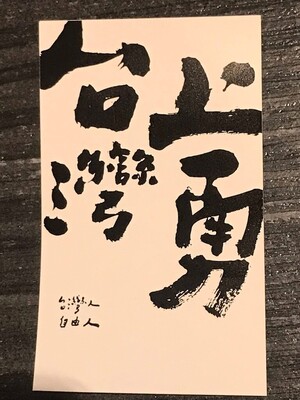 上勇
台灣
台灣人
自由人